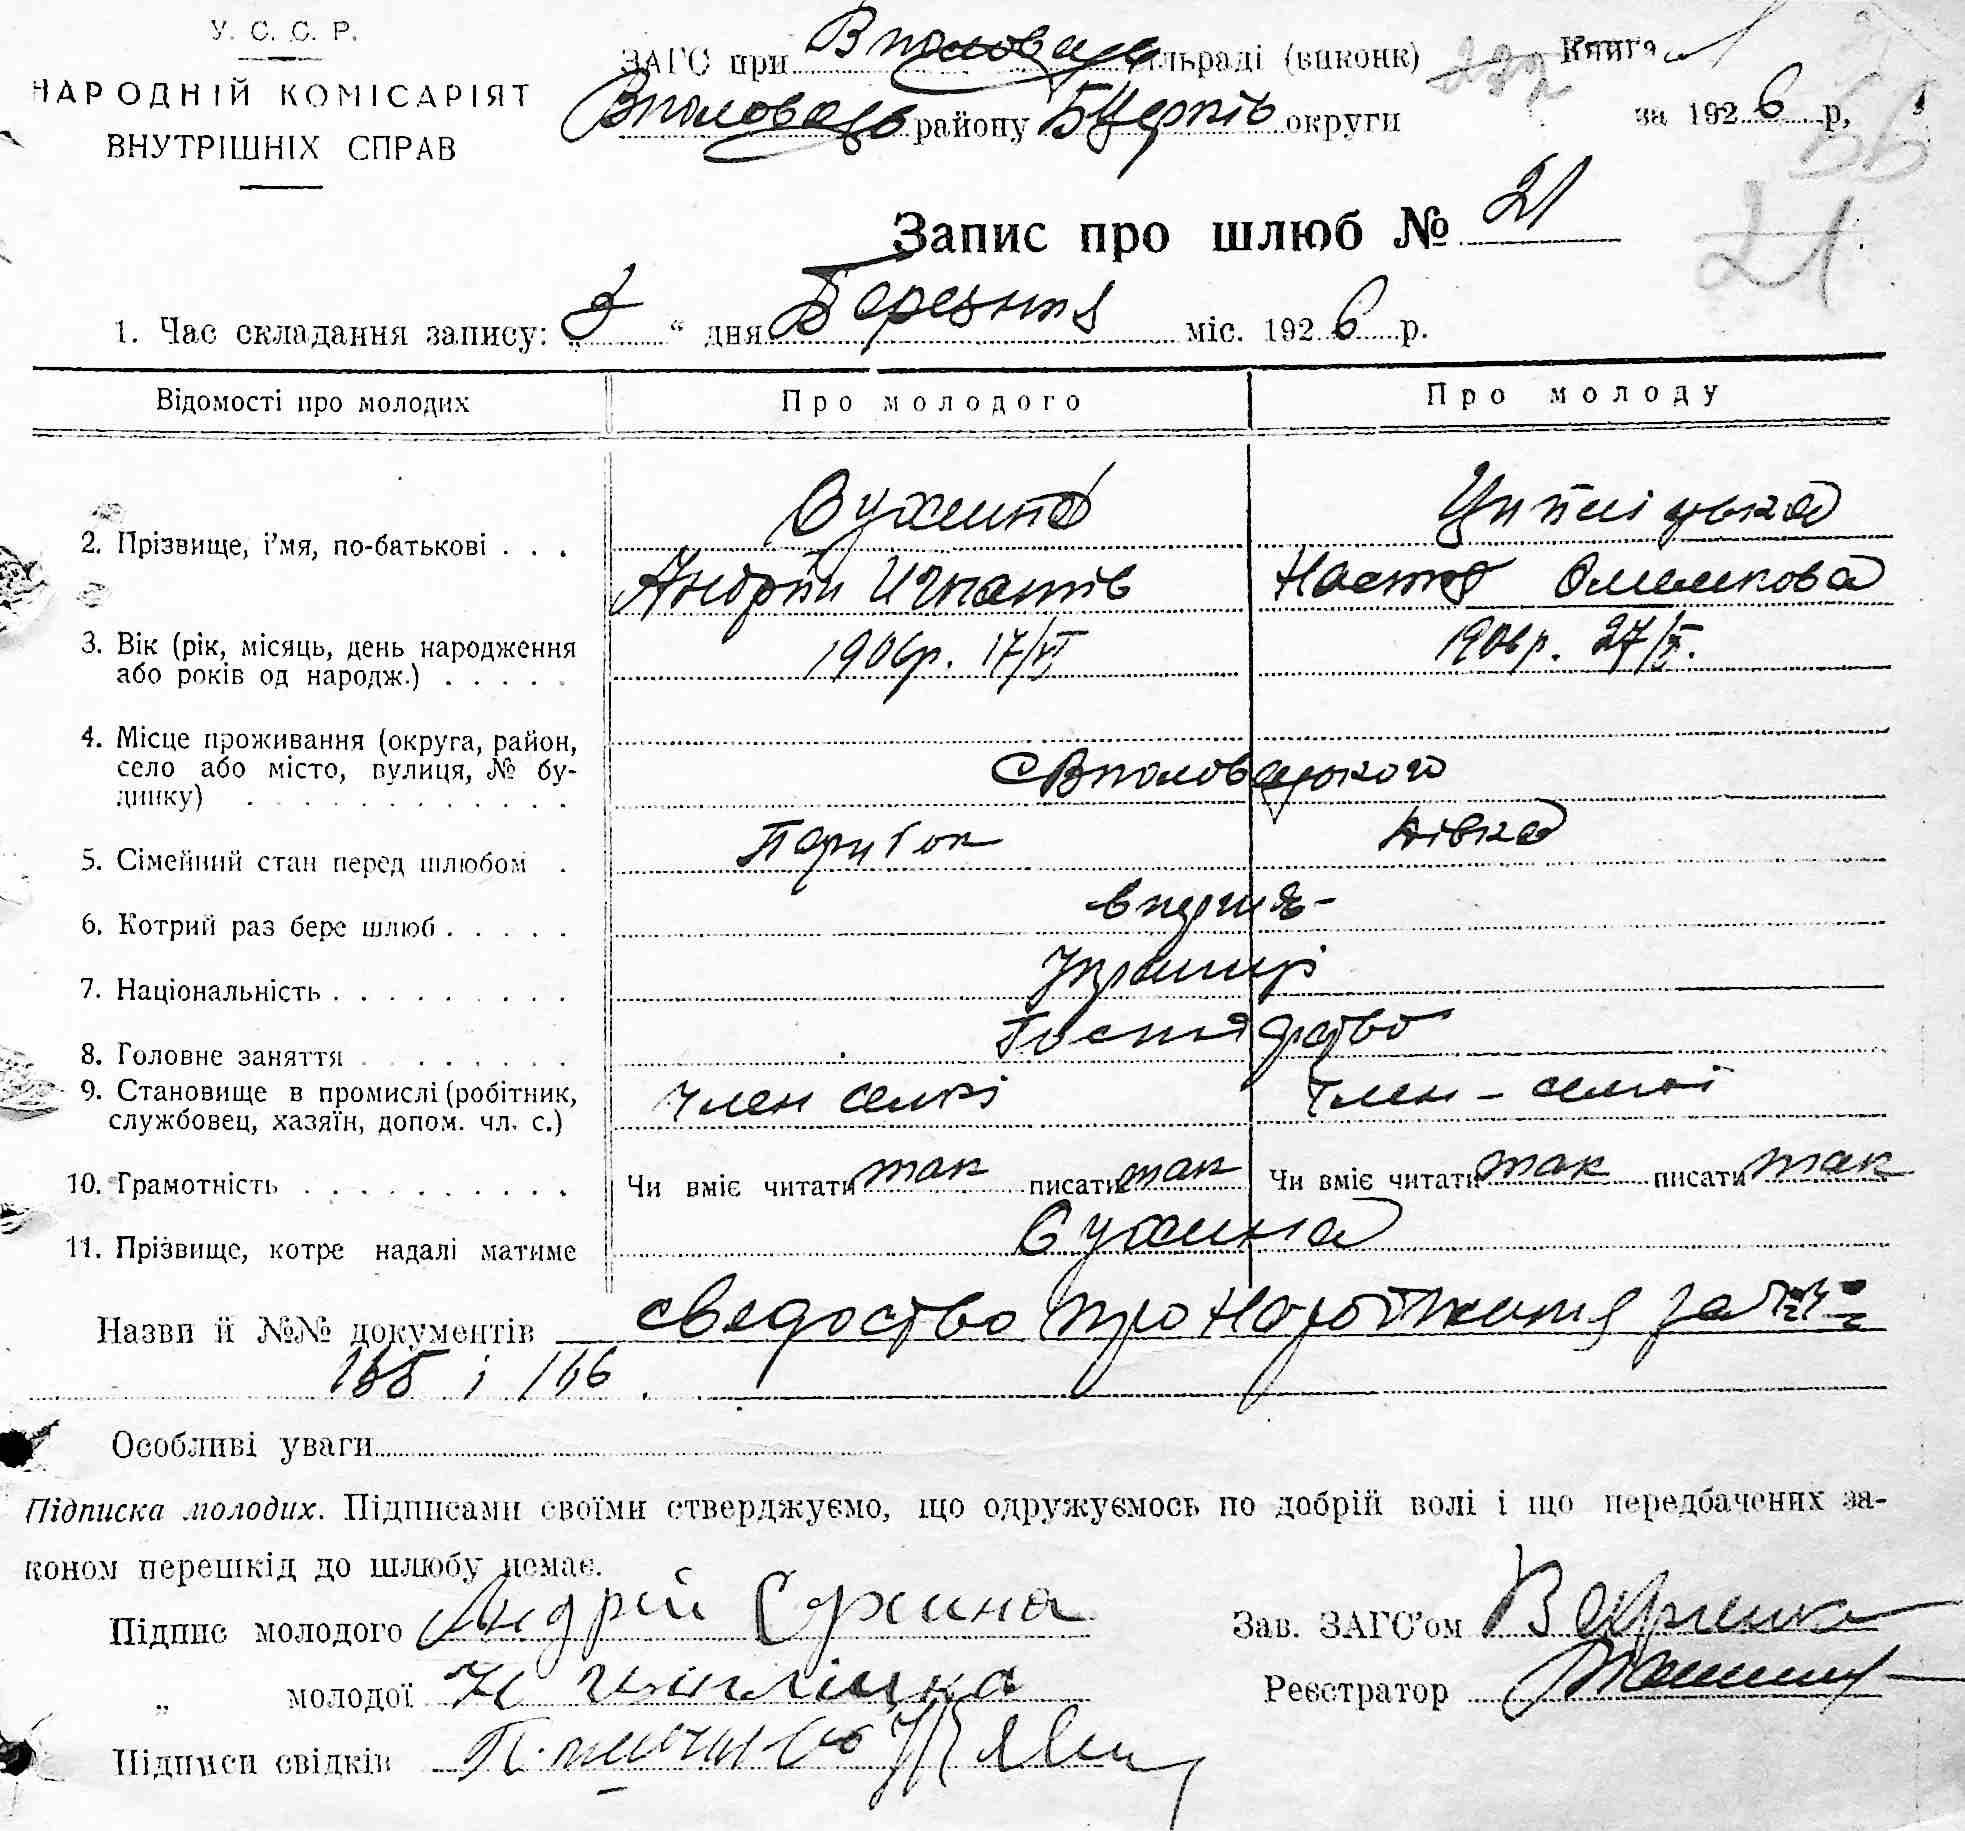 У. С. С. Р.
НАРОДНІЙ КОМІСАРІЯТ
ВНУТРІШНІХ СПРАВ
ЗАГС при Вполовец сільраді (виконк)
Вполовець району БЦерків округи
Книга
за 1926 р,
66
21
Запис про шлюб № 21
1. Час складання запису: „3“ дня Березня міс. 1926 р.
Відомості про молодих Про молодого Про молоду
2. Прізвище, і’мя, по-батькові . . . Сухина
Андрій Игнатів Настя Омелькова
3. Вік (рік, місяць, день народження або років од народж.) . . . . . 1906р. 17/VI 1906р. 27/X.
4. Місце проживання (округа, район, село або місто, вулиця, № будинку) . . . . . . . . . . . .
5. Сімейний стан перед шлюбом . Парубок Дівка
6. Котрий раз бере шлюб . . . . . вперше
7. Національність . . . . . . . . . Україн
8. Головне заняття . . . . . . . . Господарство
9. Становище в промислі (робітник, службовец, хазяїн, допом. чл. с.) член семї член - семї
10. Грамотність . . . . . . . . . . Чи вміє читати так писати так Чи вміє читати так писати так
11. Прізвище, котре надалі матиме Сухина
Назви й №№ документів сведоство про народження за №№
165 і 166
Особливі уваги
Підписка молодих. Підписами своїми стверджуємо, що одружуємось по добрій волі і що передбачених за-
коном перешкід до шлюбу немає.
Підпис молодого Андрій Сухина
„ молодої Н
Підписи свідків
Зав. ЗАГС’ом
Реєстратор